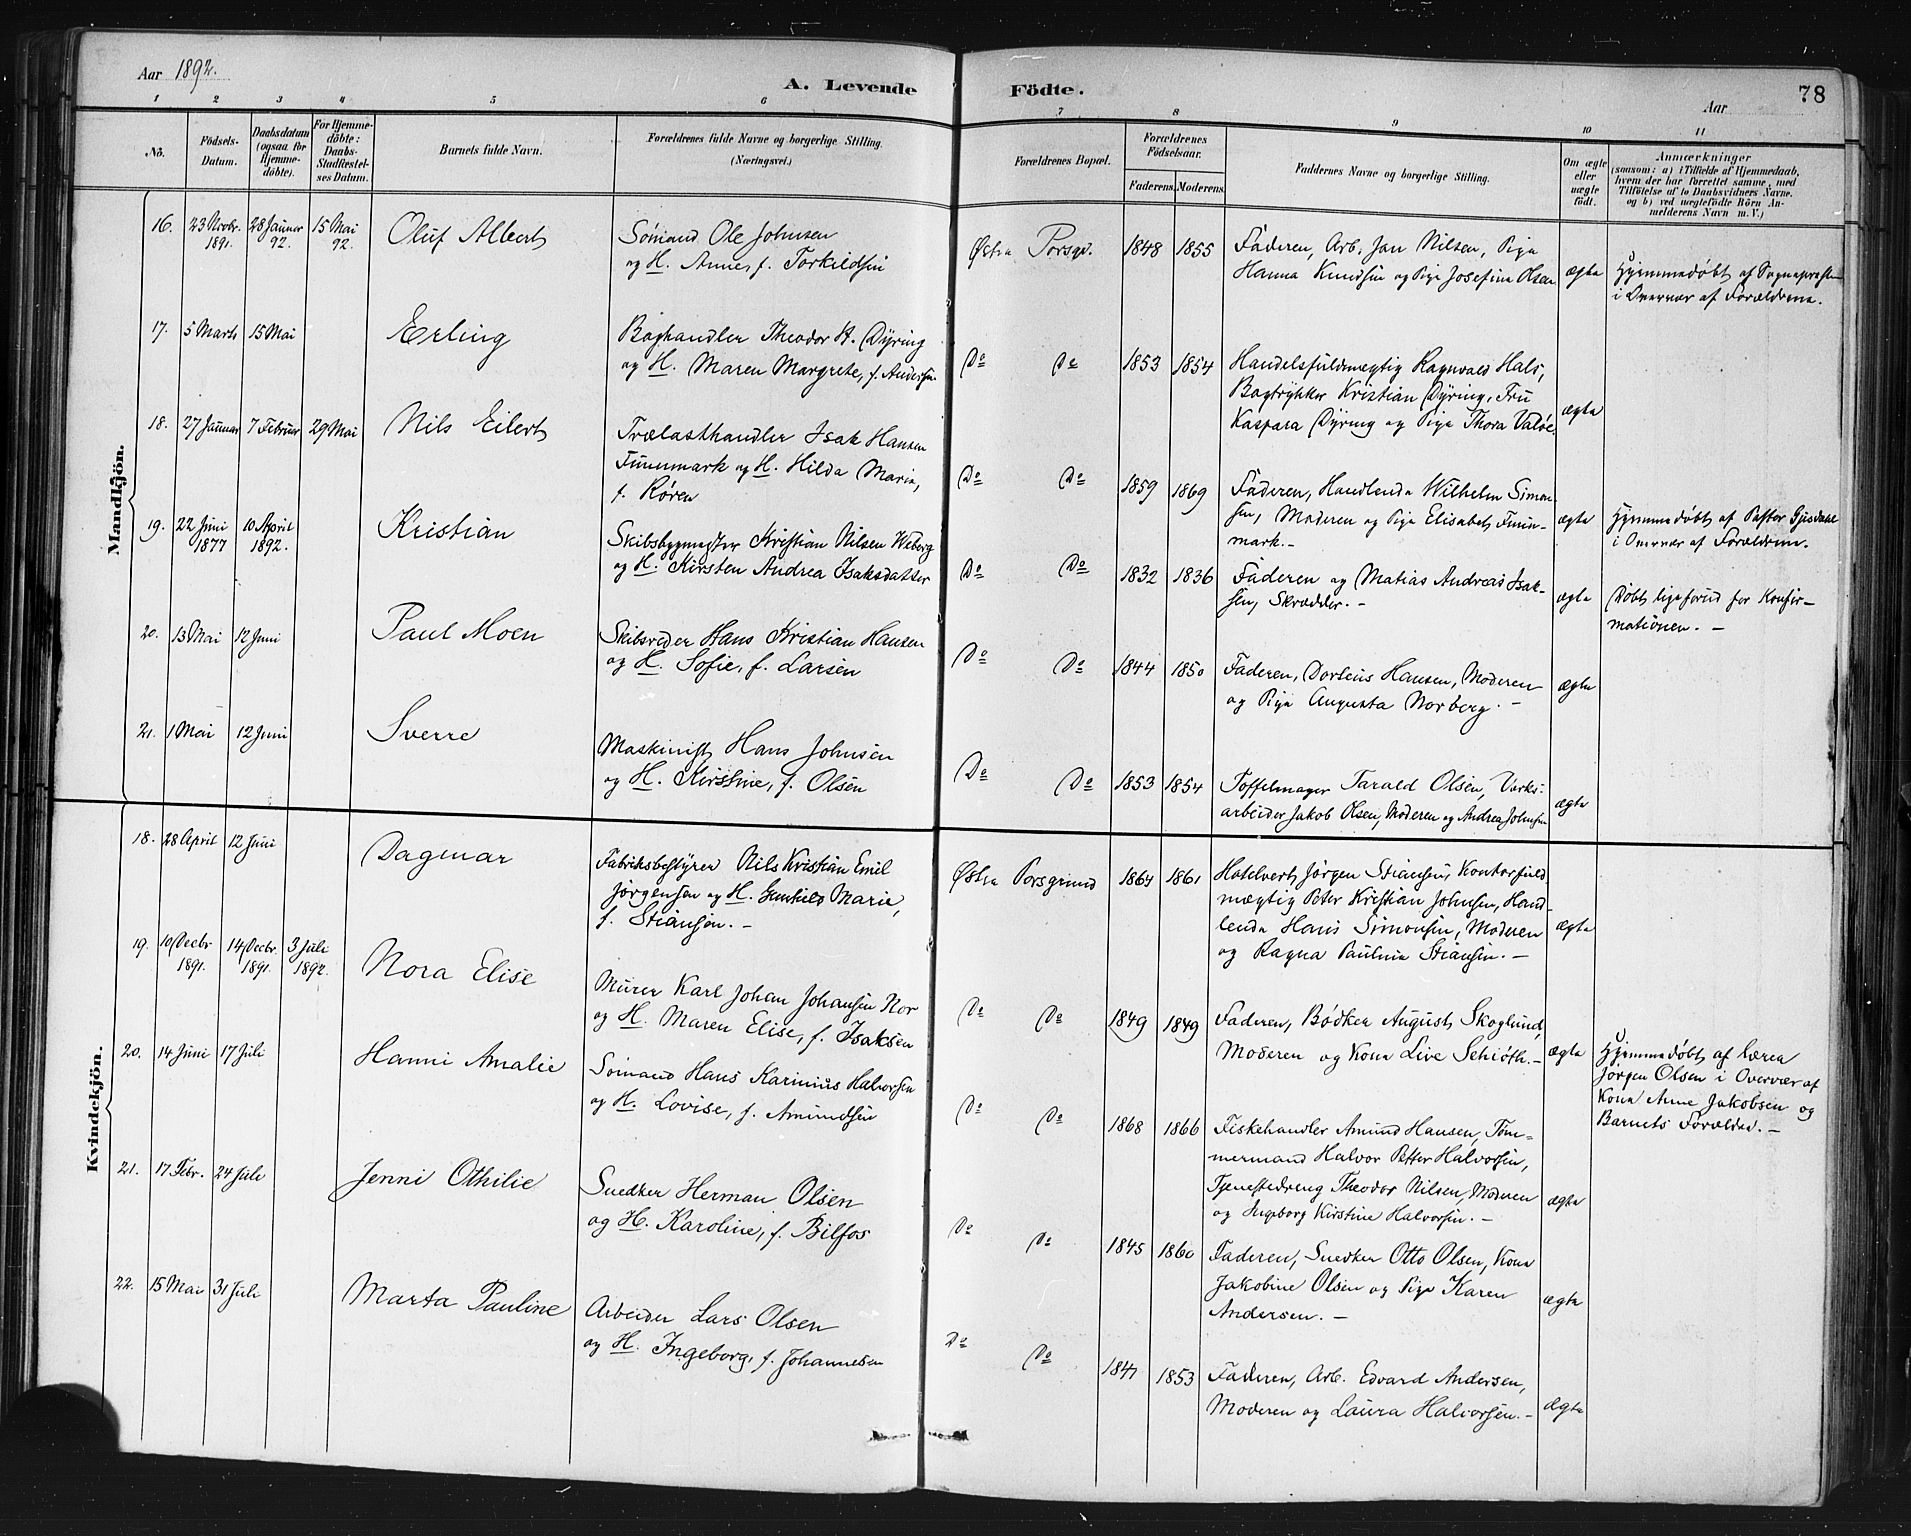 Aar 1892.
A. Levende
Födte.
Aar
78
1 2 3 4 5 6 7 8 9 10 11
No.
Födsels-
Datum.
Daabsdatum
(ogsaa for
Hjemme-
döbte).
For Hjemme-
döbte:
Daabs-
Stadfestel-
ses Datum.
Barnets fulde Navn.
Forældrenes fulde Navne og borgerlige Stilling.
(Næringsvei.)
Forældrenes Bopæl.
Forældrenes
Födselsaar.
Faderens. Moderens.
Faddernes Navne og borgerlige Stilling.
Om ægte
eller
uægte
födt.
Anmærkninger
(saasom: a) i Tilfælde af Hjemmedaab,
hvem der har forrettet samme, med
Tilföielse af to Daabsvidners Navne.
og b) ved uægtefödte Börn An-
melderens Navn m. V.)
Mandkjön.
16. 23 Novbr. 1891. 28 Januar 92. 15 Mai 92.
Oluf Albert
Sømand Ole Johnsen
og H. Anne, f. Torkildsen
Østre Porsgr. 1848 1855
Faderen, Arb. Jan Nilsen, Pige
Hanna Knudsen og Pige Josefine Olsen
ægte
Hjemmedøbt af Sognepresten
i Overvær af Forældrene.
17. 5 Marts 15 Mai
Erling
Boghandler Theodor H. Dyring
og H. Maren Margrete, f. Andersen
Do Do 1853 1854
Handelsfuldmægtig Ragnvald Hals,
Bogtrykker Kristian Dyring, Fru
Kaspara Dyring og Pige Thora Valöe
ægte
18. 27 Januar 7 Februar 29 Mai
Nils Eilert
Trælasthandler Isak Hansen
Finnmark og H. Hilda Marie,
f. Røren
Do Do 1859 1869
Faderen, Handlende Wilhelm Simon-
sen, Moderen og Pige Elisabet Finn-
mark.-
ægte
Hjemmedøbt af Pastor Gjesdahl
i Overvær af Forældrene.
19. 22 Juni 1877 10 April 1892.
Kristian
Skibsbygmester Kristian Nilsen Weberg
og H. Kirsten Andrea Isaksdatter
Do Do 1832 1836
Faderen og Matias Andreas Isak-
sen, Skrædder.-
ægte
Døbt ligeforud for Konfir-
mationen.-
20. 13 Mai 12 Juni
Paul Moen
Skibsreder Hans Kristian Hansen
og H. Sofie, f. Larsen
Do Do 1844 1850
Faderen, Dorteus Hansen, Moderen
og Pige Augusta Norberg.-
ægte
21. 1 Mai 12 Juni
Sverre
Maskinist Hans Johnsen
og H. Kirstine, f. Olsen
Do Do 1853 1854
Toffelmager Tarald Olsen, Verks-
arbeider Jakob Olsen, Moderen og Andrea Johnsen
ægte
Kvindekjön.
18. 28 April 12 Juni
Dagmar
Fabriksbestyrer Nils Kristian Emil
Jørgensen og H. Gunhild Marie,
f. Stiansen.-
Østre Porsgrund 1864 1861
Hotelvert Jørgen Stiansen, Kontorfuld-
mægtig Peter Kristian Johnsen, Hand-
lende Hans Simonsen, Moderen
og Ragna Pauline Stiansen.-
ægte
19. 10 Decbr 1891. 14 Decbr. 1891. 3 Juli 1892.
Nora Elise
Murer Karl Johan Johansen Nor
og H. Maren Elise, f. Isaksen
Do Do 1849 1849
Faderen, Bødker August Skoglund,
Moderen og Kone Live Schiöth.-
ægte
Hjemmedøbt af Lærer
Jørgen Olsen i Overvær af
Kone Anne Jakobsen og
Barnets Forældre.-
20. 14 Juni 17 Juli
Hanni Amalie
Sømand Hans Karinius Halvorsen
og H. Lovise, f. Amundsen
Do Do 1868 1866
Fiskehandler Amund Hansen, Tøm-
mermand Halvor Petter Halvorsen,
Tjenestedreng Theodor Nilsen, Moderen
og Ingeborg Kirstine Halvorsen.-
ægte
21. 17 Febr. 24 Juli
Jenni Othilie
Snedker Herman Olsen
og H. Karoline, f. Bilfos
Do Do 1845 1860
Faderen, Snedker Otto Olsen, Kone
Jakobine Olsen og Pige Karen
Andersen.-
ægte
22. 15 Mai 31 Juli
Marta Pauline
Arbeider Lars Olsen
og H. Ingeborg, f. Johannesen
Do Do 1847 1853
Faderen, Arb. Edvard Andersen,
Moderen og Laura Halvorsen.-
ægte